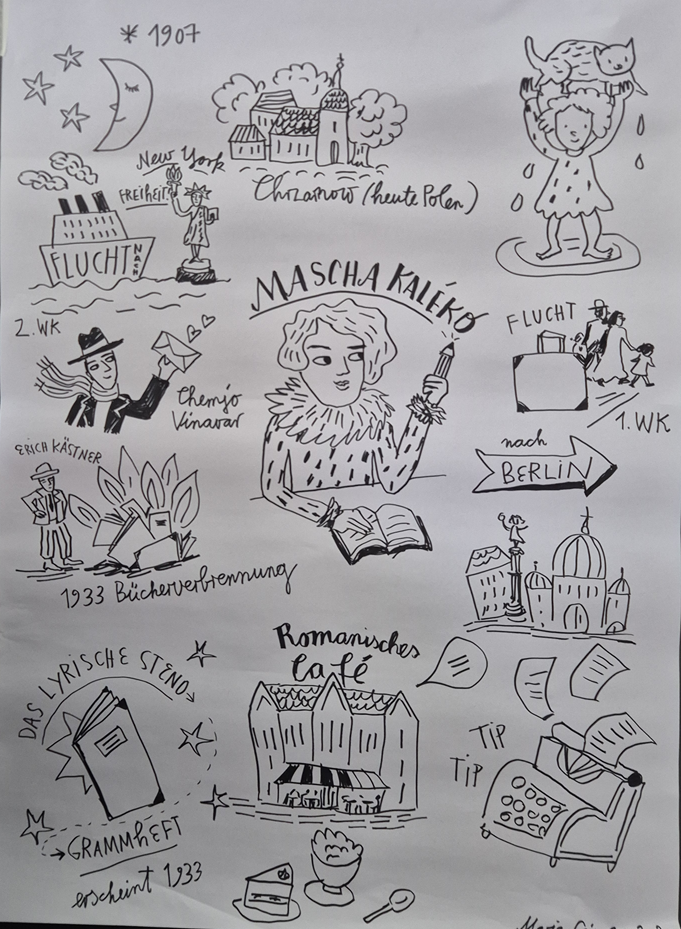 * 1907
Chrzanow (heute Polen)
New York
FREIHEIT
FLUCHT
NACH
MASCHA KALÉKO
FLUCHT
1. WK
2. WK
Chemjo
Vinavar
nach
BERLIN
ERICH KÄSTNER
1933 Bücherverbrennung
Romanisches
Café
DAS LYRISCHE STENO
GRAMMHEFT
erscheint 1933
TIP
TIP
Maria